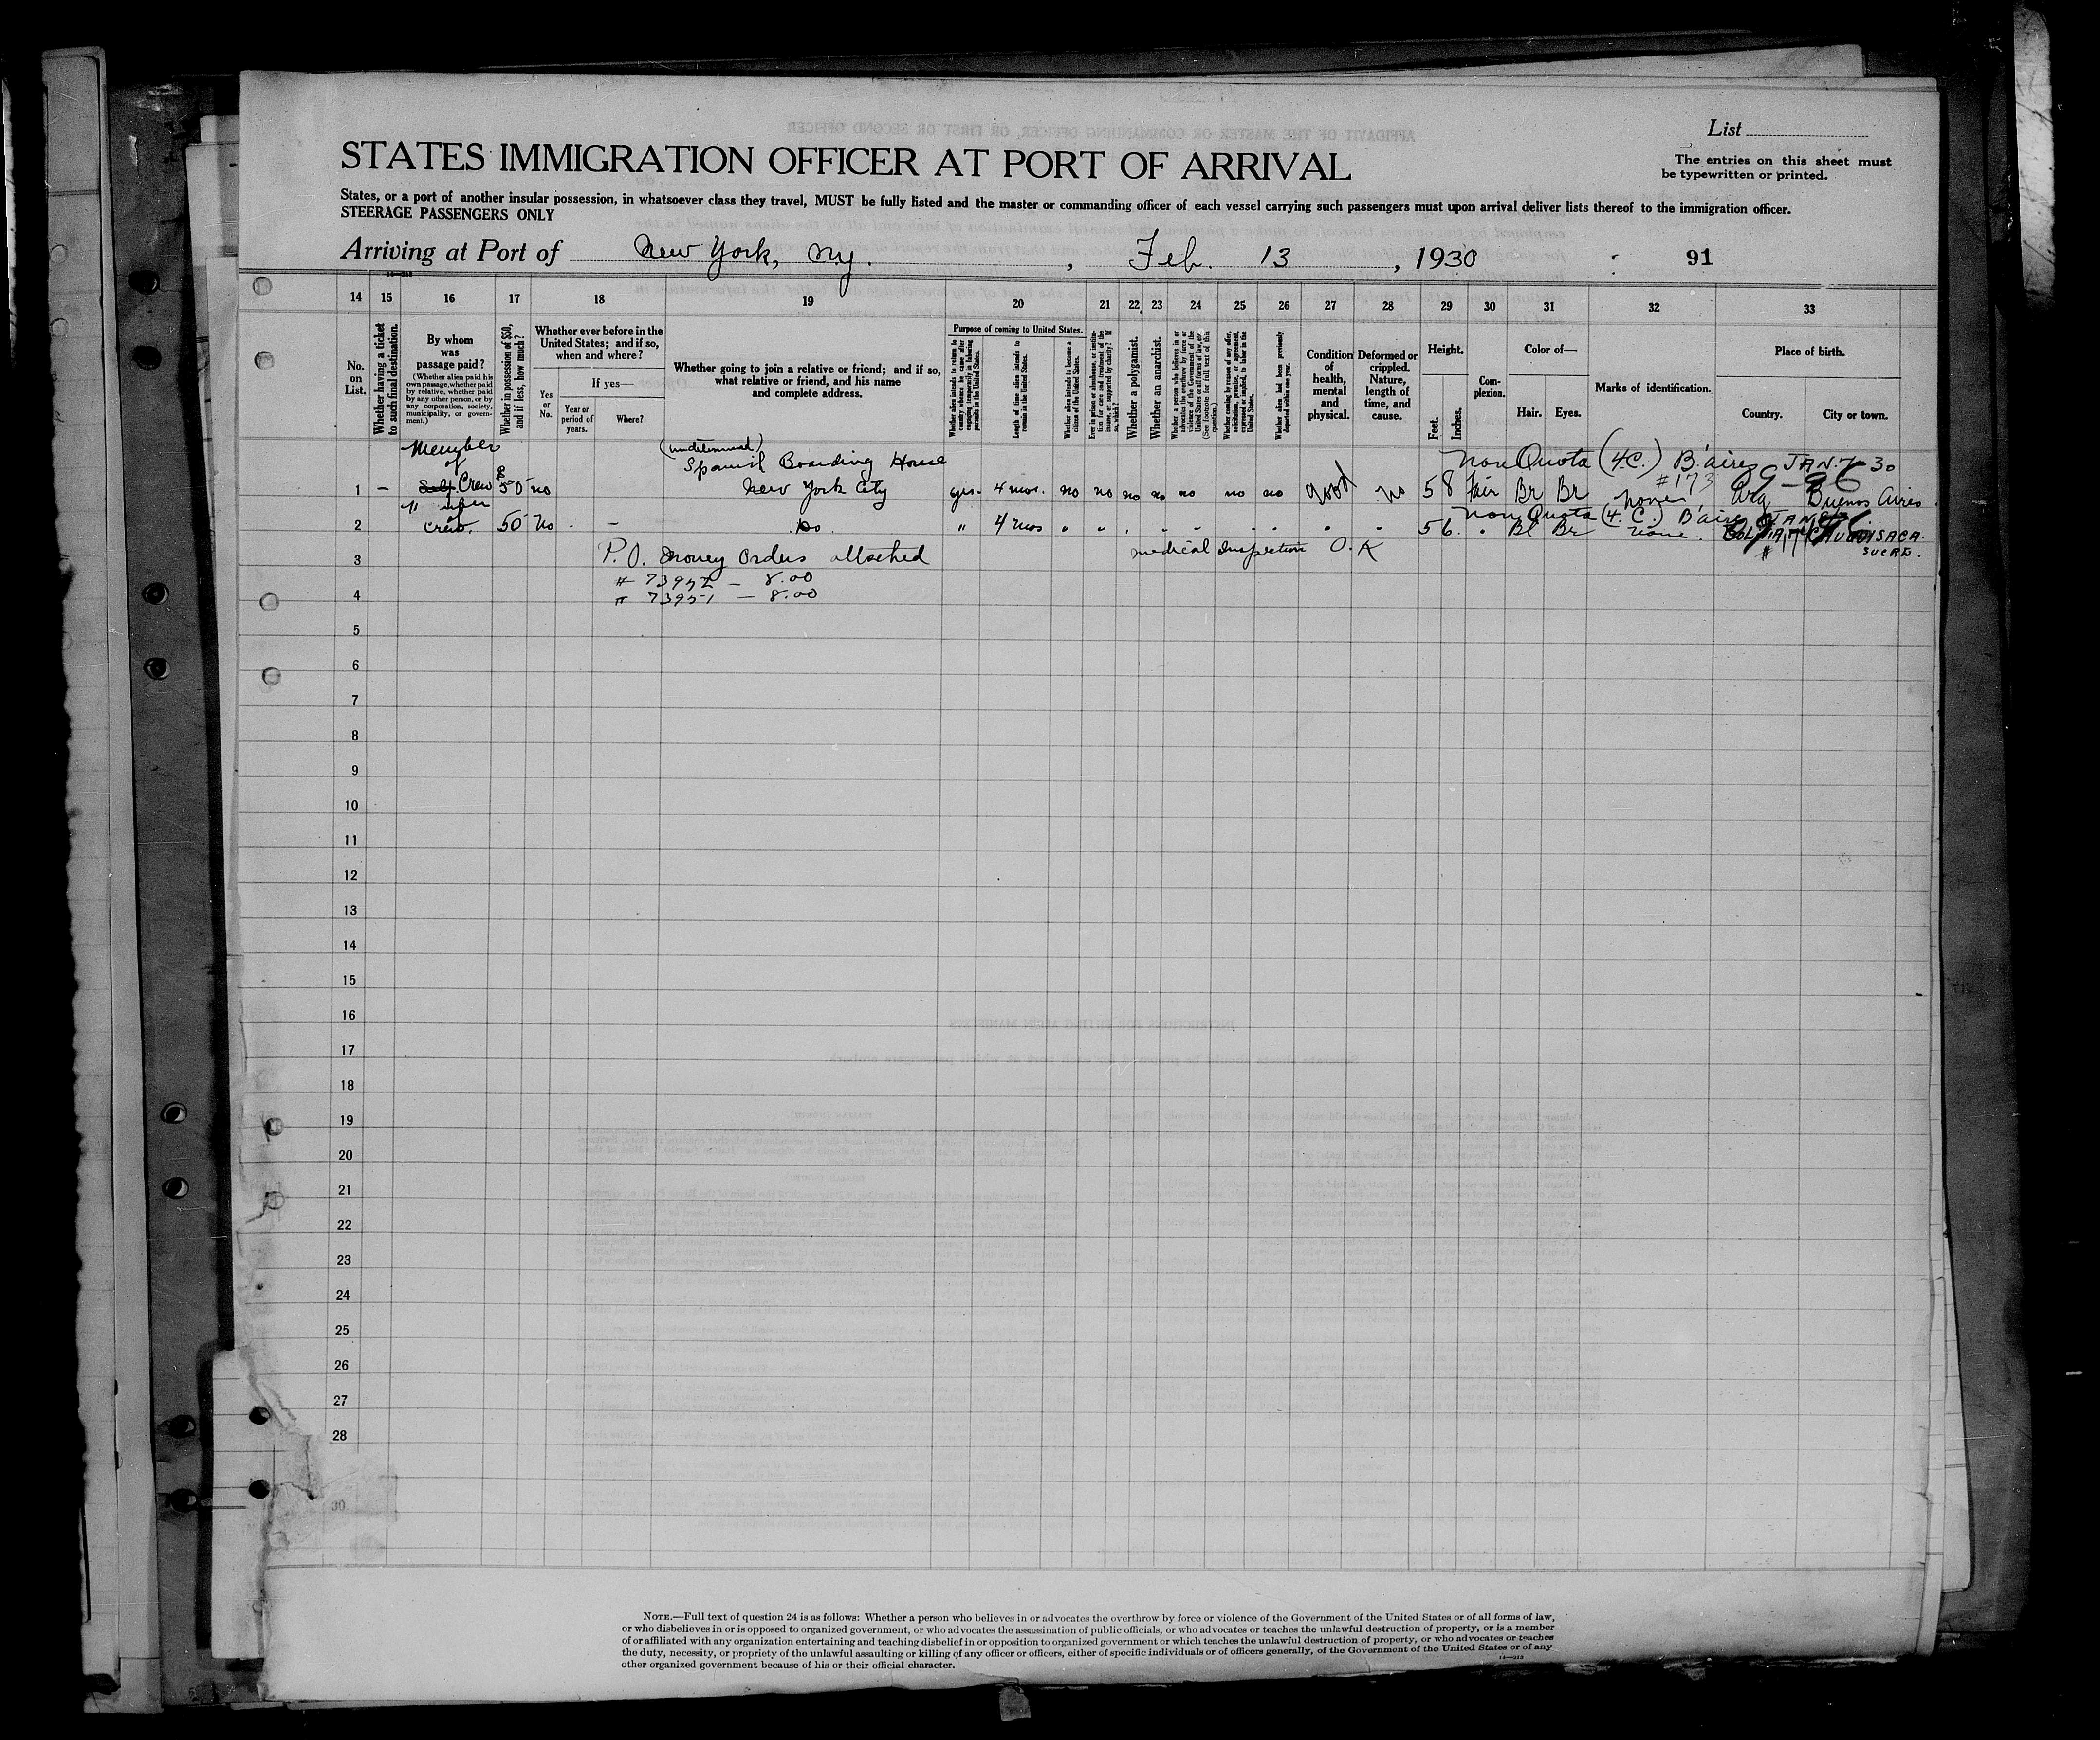 List
STATES IMMIGRATION OFFICER AT PORT OF ARRIVAL
The entries on this sheet must
be typewritten or printed.
States, or a port of another insular possession, in whatsoever class they travel, MUST be fully listed and the master or commanding officer of each vessel carrying such passengers must upon arrival deliver lists thereof to the immigration officer.
STEERAGE PASSENGERS ONLY
Arriving at Port of New York, N.Y. , Feb. 13 , 1930 91
14 15 16 17 18 19 20 21 22 23 24 25 26 27 28 29 30 31 32 33
No. on List.
Whether having a ticket to such final destination.
By whom was passage paid?
(Whether alien paid his own passage, whether paid by relative, whether paid by any other person, or by any corporation, society, municipality, or government.)
Whether in possession of $50, and if less, how much?
Whether ever before in the United States; and if so, when and where?
Yes or No.
If yes—
Year or period of years.
Where?
Whether going to join a relative or friend; and if so, what relative or friend, and his name and complete address.
Purpose of coming to United States.
Whether alien intends to return to country whence he came after engaging temporarily in laboring pursuits in the United States.
Length of time alien intends to remain in the United States.
Whether alien intends to become a citizen of the United States.
Ever in prison or almshouse, or institution for care and treatment of the insane, or supported by charity? If so, which?
Whether a polygamist.
Whether an anarchist.
Whether a person who believes in or advocates the overthrow by force or violence of the Government of the United States or all forms of law, etc. (See footnote for full text of this question.)
Whether coming by reason of any offer, solicitation, promise, or agreement, expressed or implied, to labor in the United States.
Whether alien had been previously deported within one year.
Condition of health, mental and physical.
Deformed or crippled. Nature, length of time, and cause.
Height.
Feet. Inches.
Complexion.
Color of—
Hair. Eyes.
Marks of identification.
Place of birth.
Country. City or town.
Member
of
(undetermined)
Spanish Boarding House
Non Quota (4.C.) B. aires JAN. 7-30
#173
1 — Self Crew 50 no New York City yes. 4 mos. no no no no no no no good no 5 8 fair Br Br none Arg Buenos Aires
Non Quota (4. C.) B'aires
2 crew. 50 no - Do " 4 mos " " 5 6 Bl Br none.
SUCRE.
3 P.O. Money Orders attached medical Inspection O.K
# 73952 — 8.00
4 # 73951 — 8.00
5
6
7
8
9
10
11
12
13
14
15
16
17
18
19
20
21
22
23
24
25
26
27
28
30
NOTE.—Full text of question 24 is as follows: Whether a person who believes in or advocates the overthrow by force or violence of the Government of the United States or of all forms of law,
or who disbelieves in or is opposed to organized government, or who advocates the assassination of public officials, or who advocates or teaches the unlawful destruction of property, or is a member
of or affiliated with any organization entertaining and teaching disbelief in or opposition to organized government or which teaches the unlawful destruction of property, or who advocates or teaches
the duty, necessity, or propriety of the unlawful assaulting or killing of any officer or officers, either of specific individuals or of officers generally, of the Government of the United States or of any
other organized government because of his or their official character.